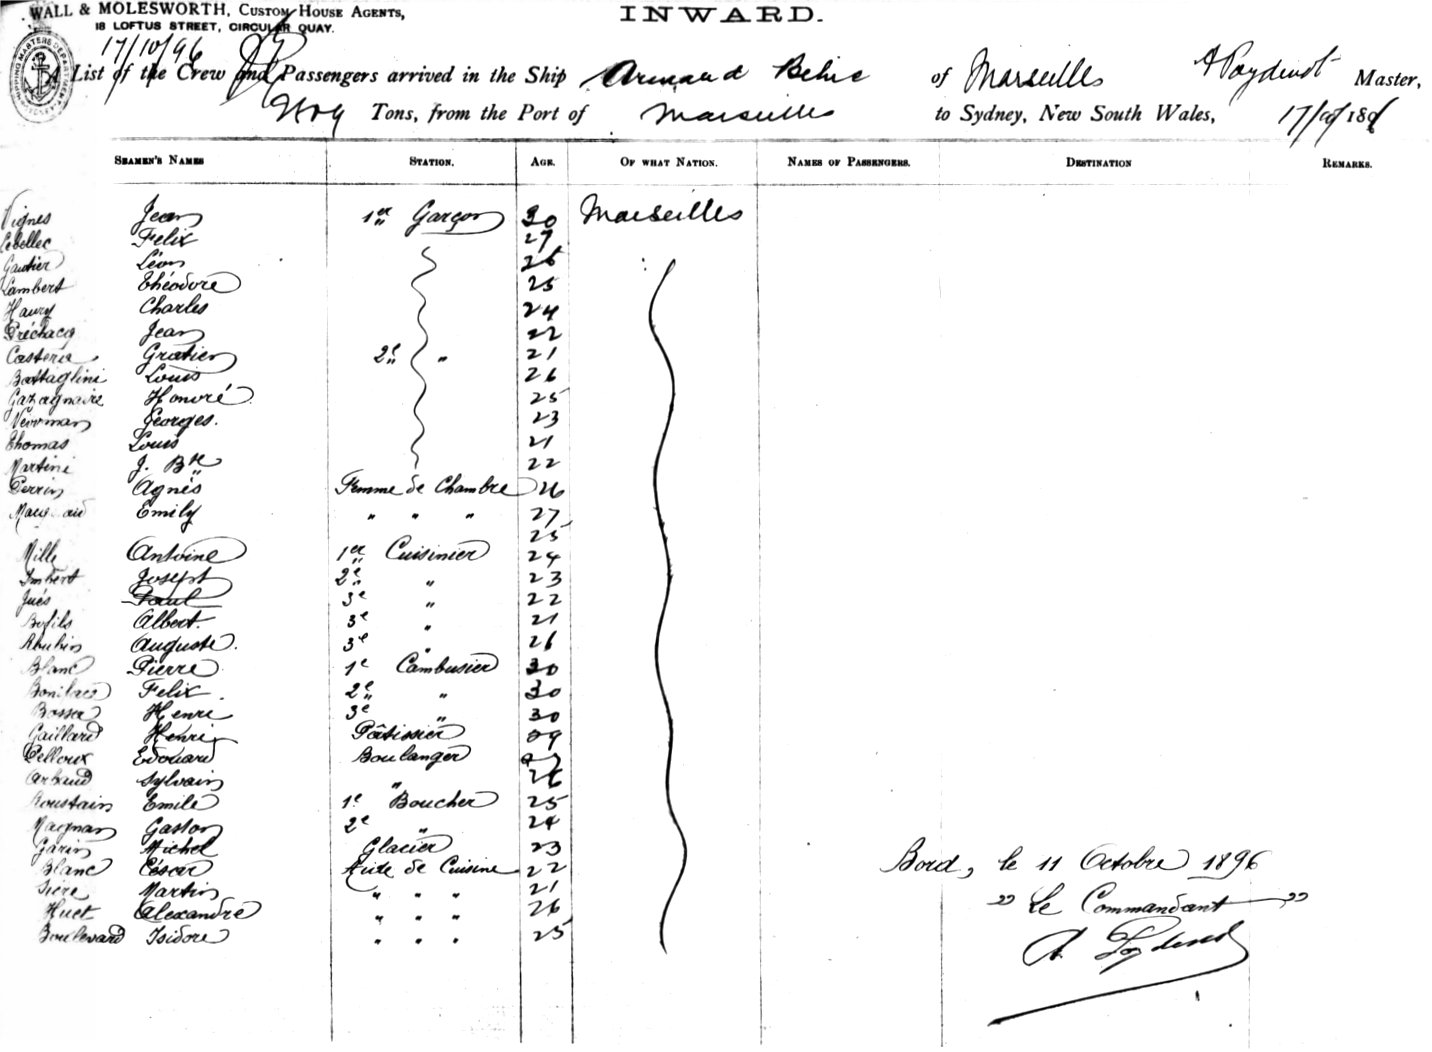 WALL & MOLESWORTH, CUSTOM HOUSE AGENTS,
18 LOFTUS STREET, CIRCULAR QUAY.
INWARD.
17/10/96
A List of the Crew and Passengers arrived in the Ship Armand Behic of Marseilles A Poydenot Master,
Tons, from the Port of Marseilles to Sydney, New South Wales, 17/10/1896
SEAMEN'S NAMES STATION. AGE. OF WHAT NATION. NAMES OF PASSENGERS. DESTINATION REMARKS.
Vignes Jean 1er Garçon 30 Marseilles
Lebellec Felix 27
Gautier Léon 26
Lambert Théodore 25
Haury Charles 24
Préchacq Jean 22
Casteria Gratien 2e " 21
Battaglini Louis 26
Gazagnaire Honoré 25
Neuvman Georges. 23
Thomas Louis 21
Martini J. Bte 22
Perrin Agnès Femme de Chambre 26
Emily " " " 27
25
Mille Antoine 1er Cuisinier 24
Imbert Joseph 2e " 23
Jués Paul 3e " 22
Bofils Albert. 3e " 21
Auguste. 3e " 26
Blanc Pierre 1e Cambusier 30
Boniface Felix 2e " 30
Bossa Henri 3e " 30
Gaillard Henri Pâtissier 29
Pelloux Edouard Boulanger 27
Arbaud Sylvain " 26
Roustain Emile 1e Boucher 25
Magnan Gaston 2e " 24
Garin Michel Glacier 23
Blanc César Aide de Cuisine 22
Sière Martin " " " 21
Huet Alexandre " " " 26
Boulevard Isidore " " " 25
Bord, le 11 Octobre 1896
" Le Commandant "
A. Poydenot